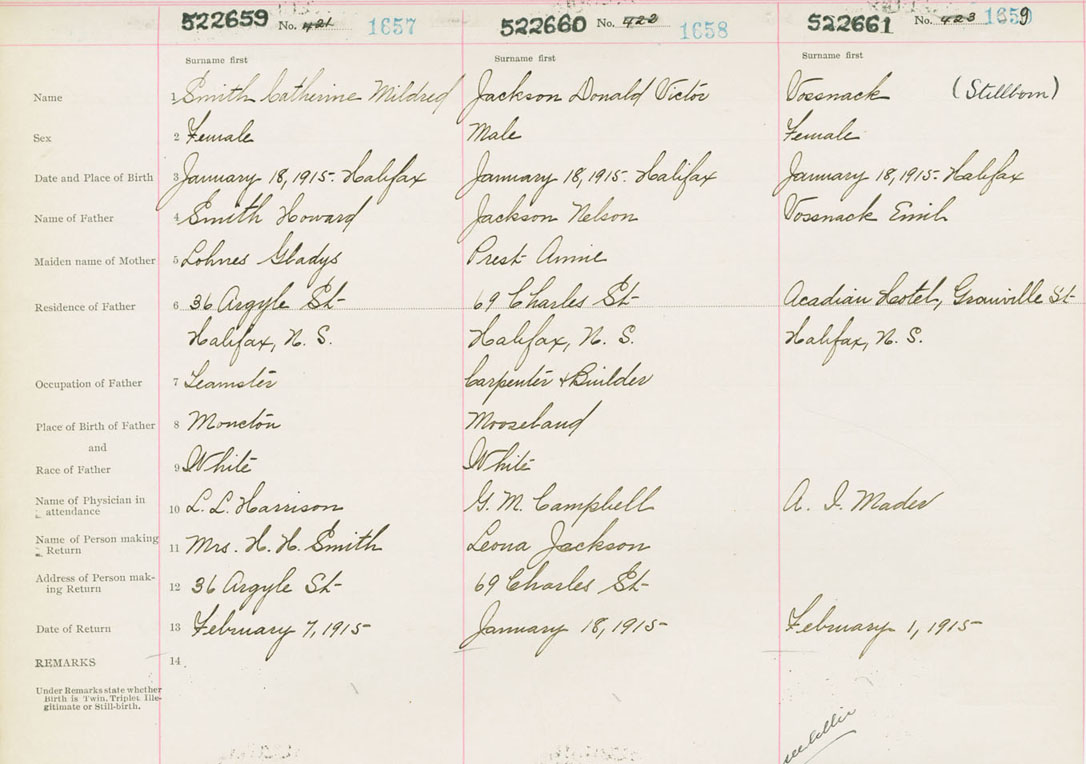 522659 No. 421 1657 522660 No. 422 1658 522661 No. 423 1659
Surname first Surname first Surname first
Name 1 Smith Catherine Mildred Jackson Donald Victor Vossnack (Stillborn)
Sex 2 Female Male Female
Date and Place of Birth 3 January 18, 1915. Halifax January 18, 1915. Halifax January 18, 1915. Halifax
Name of Father 4 Smith Howard Jackson Nelson Vossnack Emil
Maiden name of Mother 5 Lohnes Gladys Prest Annie
Residence of Father 6 36 Argyle St 69 Charles St Acadian Hotel, Granville St
Halifax, N. S. Halifax, N. S. Halifax, N. S.
Occupation of Father 7 Teamster Carpenter & Builder
Place of Birth of Father 8 Moncton Mooseland
and
Race of Father 9 White White
Name of Physician in
attendance 10 L. L. Harrison G. M. Campbell A. I. Mader
Name of Person making
Return 11 Mrs. H. H. Smith Leona Jackson
Address of Person mak-
ing Return 12 36 Argyle St 69 Charles St
Date of Return 13 February 7, 1915 January 18, 1915 February 1, 1915
REMARKS 14
Under Remarks state whether
Birth is Twin, Triplet, Ille-
gitimate or Still-birth.